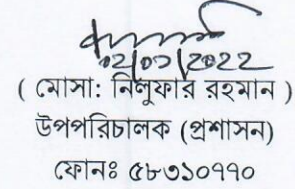 ০২/০১/2022
( মোসা: নিলুফার রহমান )
উপপরিচালক (প্রশাসন)
ফোনঃ ৫৮৩১০৭৭০